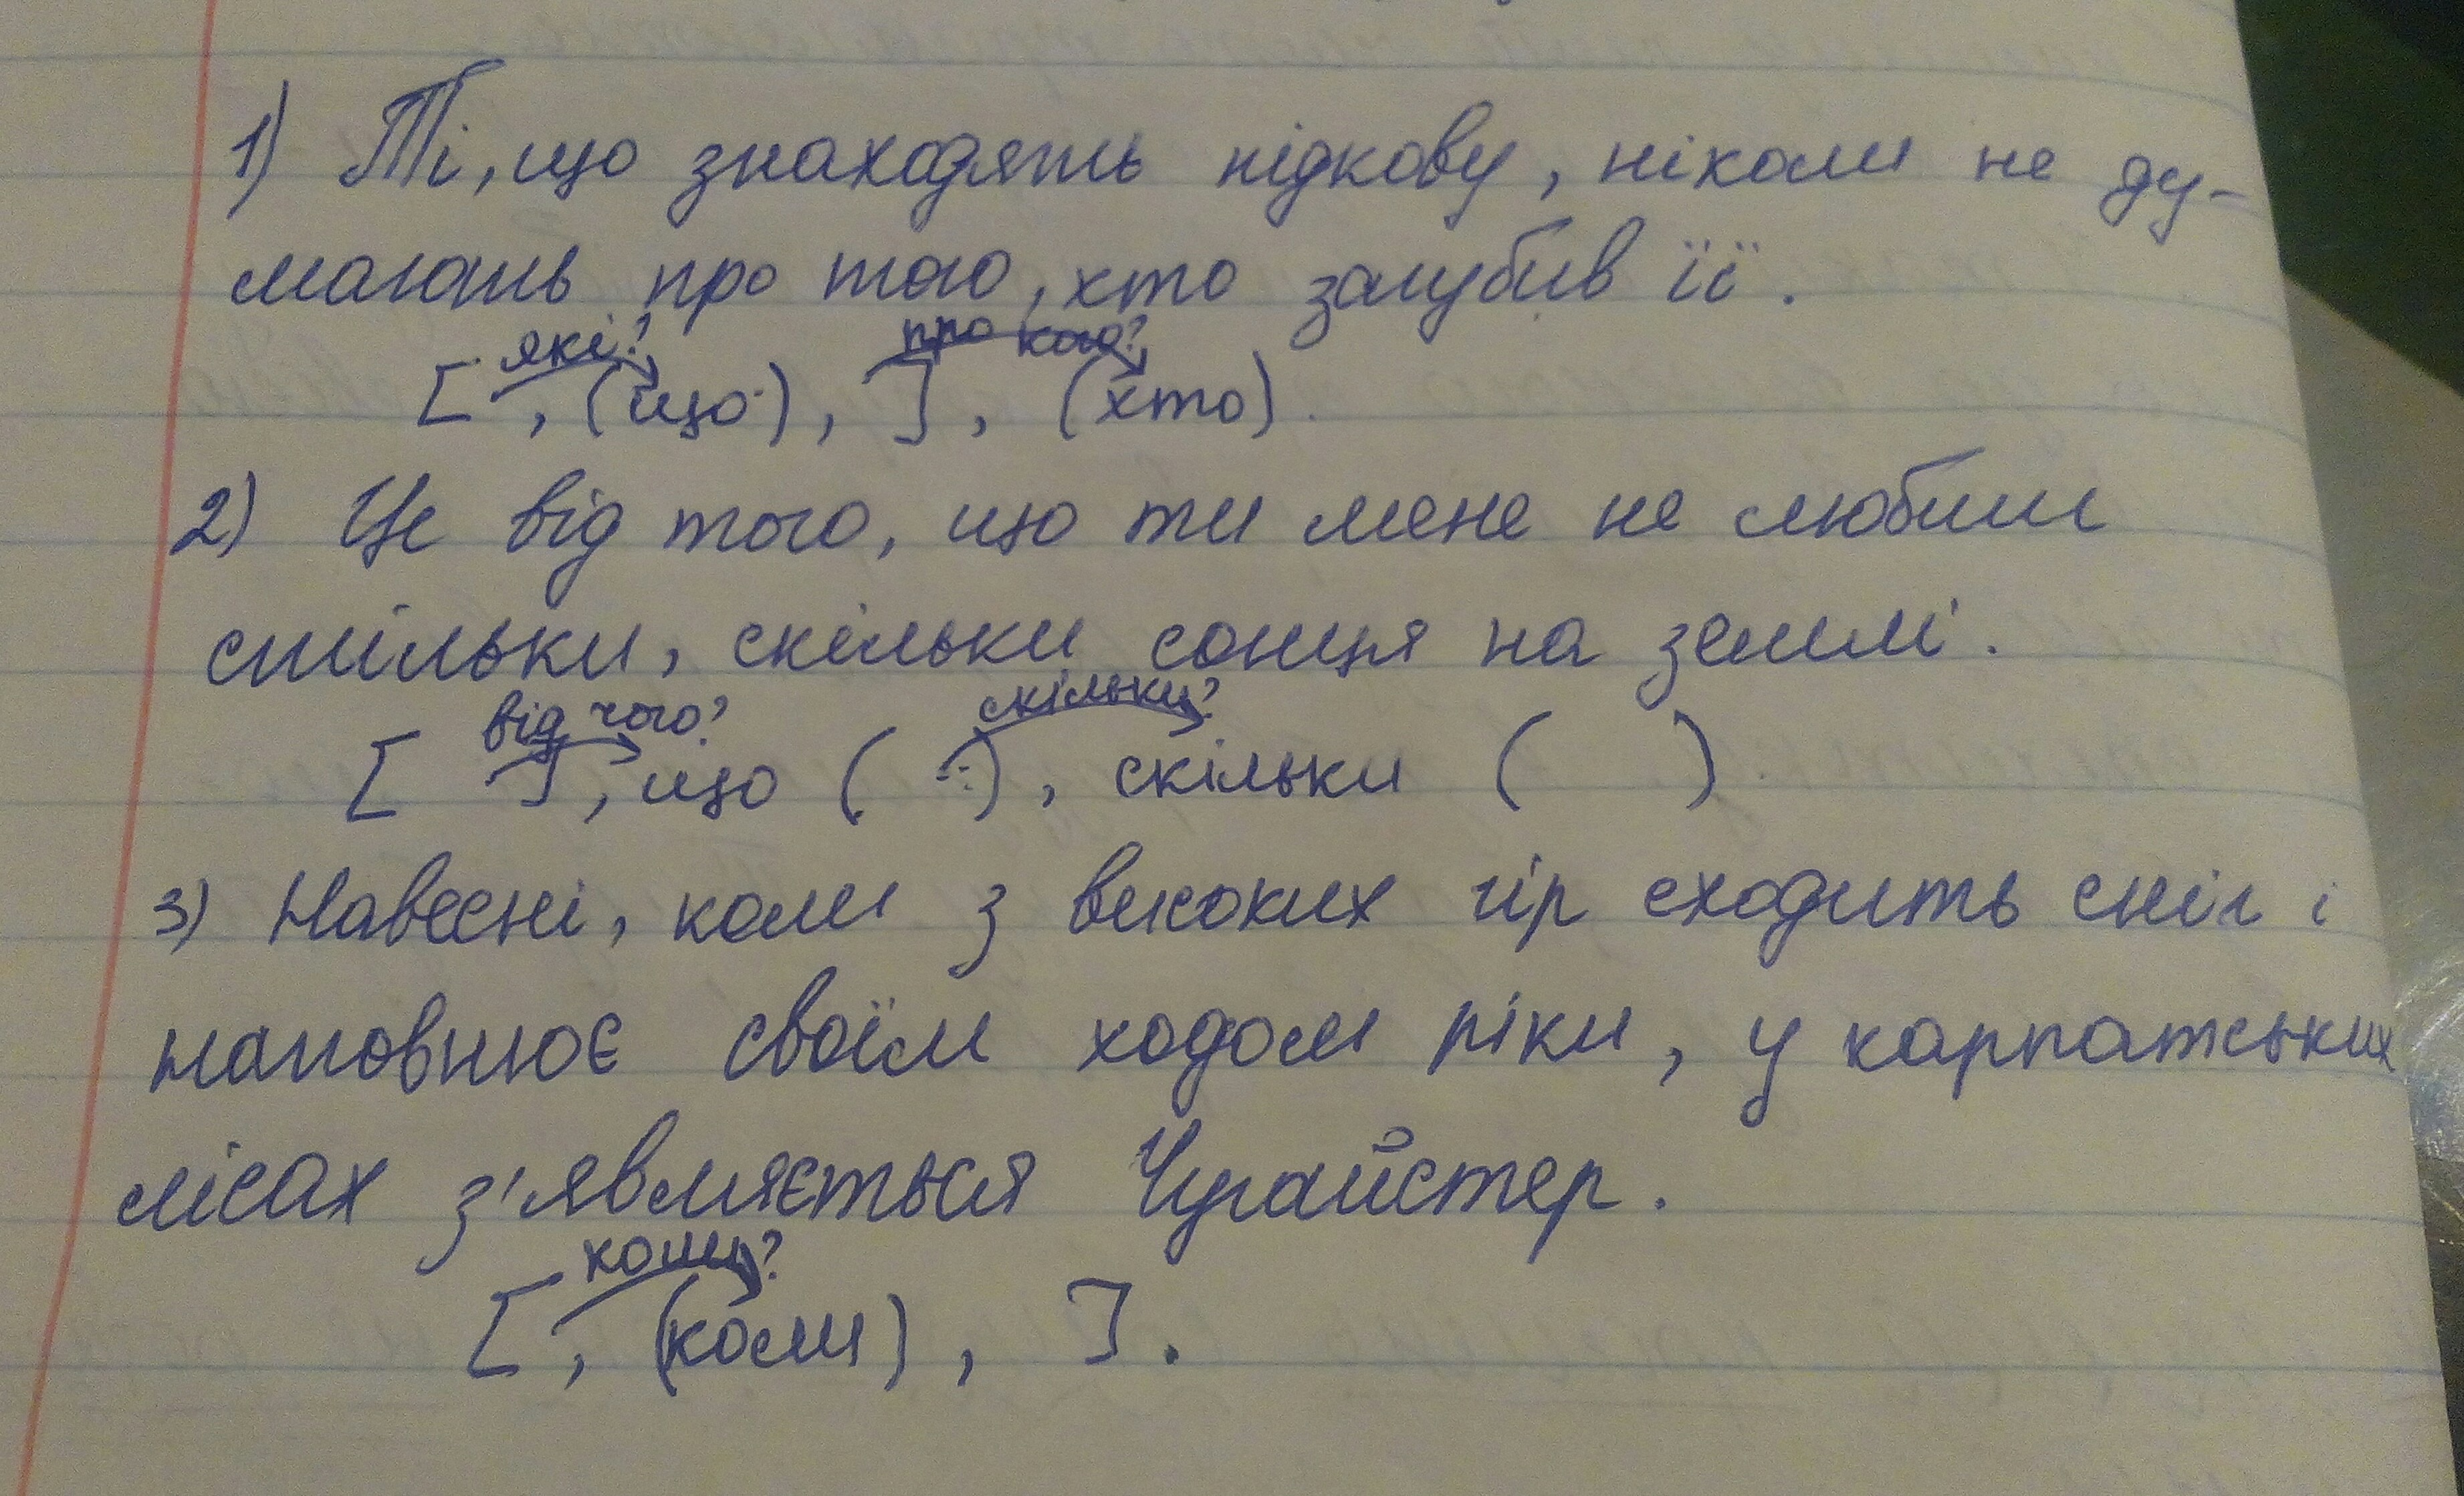 1) Ті, що знаходять підкову, ніколи не ду-
мають про того, хто загубив її.
які? про кого?
[ , (що), ], (хто).
2) Це від того, що ти мене не любиш
стільки, скільки сонця на землі.
від чого? скільки?
[ ], що ( ), скільки ( )
3) Навесні, коли з високих гір сходить сніг і
наповнює своїм ходом ріки, у карпатських
лісах з'являється Чугайстер.
коли?
[ , (коли), ].